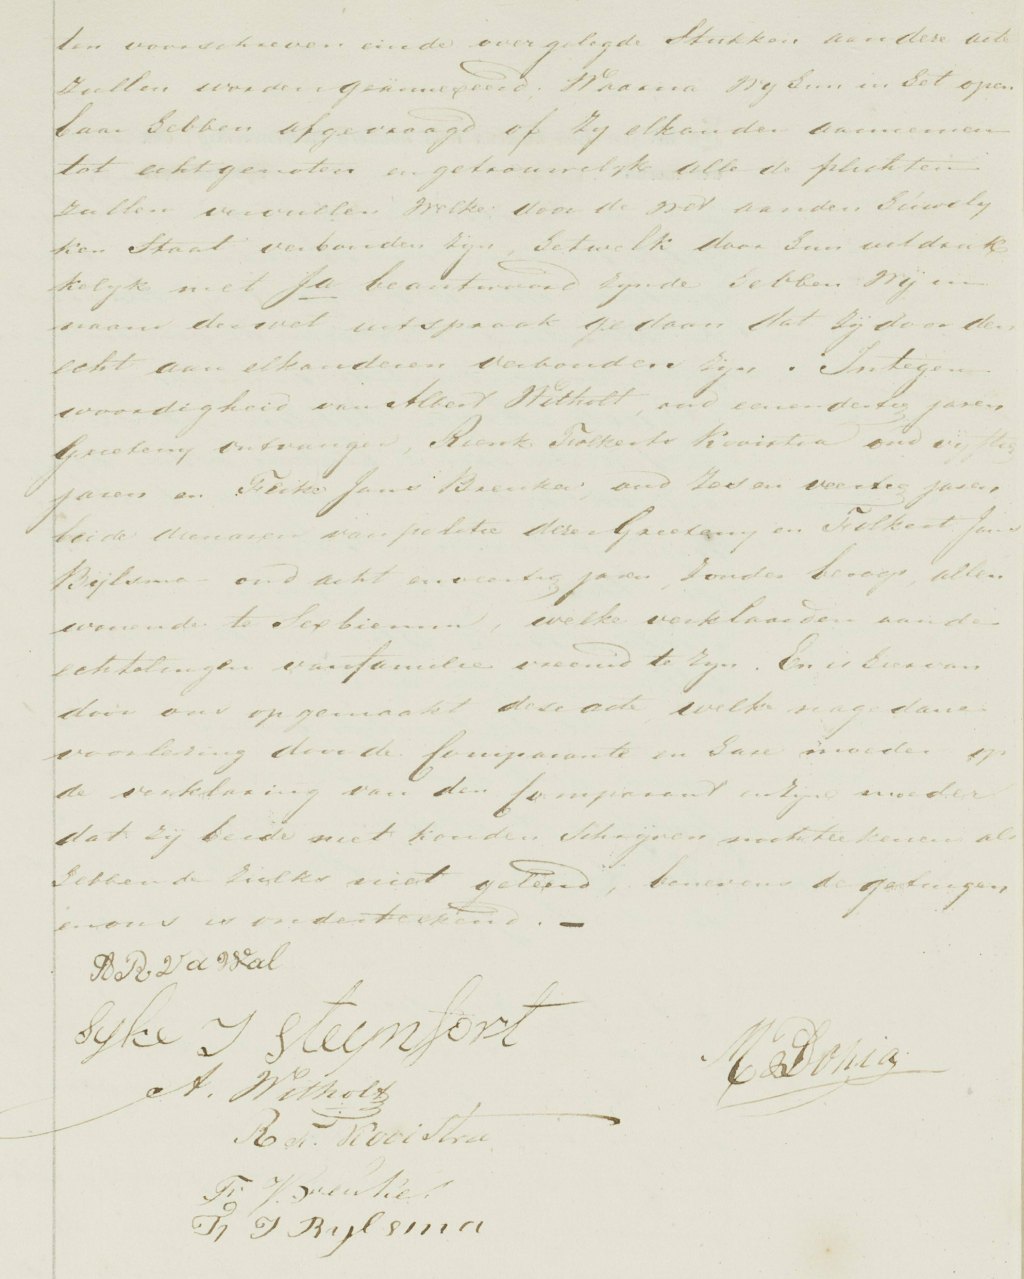 ten voorschreven einde overgelegde Stukken aan deze acte
zullen worden geannexeerd, Waarna Wy hun in het open
baar hebben afgevraagd of zy elkander aannemen
tot echtgenoten en getrouwelyk alle de pluchten
zullen vervullen Welke door de Wet aan den huwely
ken Staat verbonden zyn, hetwelk door hun uitdruk
kelyk met Ja beantwoord zynde hebben Wij in
naam der wet uitspraak gedaan dat zij door den
echt aan elkanderen verbonden zyn. In tegen
woordigheid van Albert Witholt, oud eenendertig jaren
Grieteny ontvanger, Rienk Folkerts Kooistra oud vijftig
jaren en Feike Jans Brenker, oud zes en veertig jaren
beide dienaren van politie dezer Grieteny en Folkert Jans
Bijlsma oud acht en veertig jaren, zonder beroep, allen
wonende te Sexbierum, welke verklaarden aan de
echtelingen van familie vreemd te zyn. En is hiervan
door ons opgemaakt deze acte, welke na gedane
voorlezing door de Comparante en hare moeder op
de verklaring van den Comparant en zyne moeder
dat zij beide niet konden Schryven noch teekenen als
hebbende zulks niet geleerd, benevens de getuigen
en ons is onderteekend. —
A R Vd Wal
Syke J Steijnfort
A. Witholt
M Donia
R F. Kooistra
F J Brenker
F J Bylsma